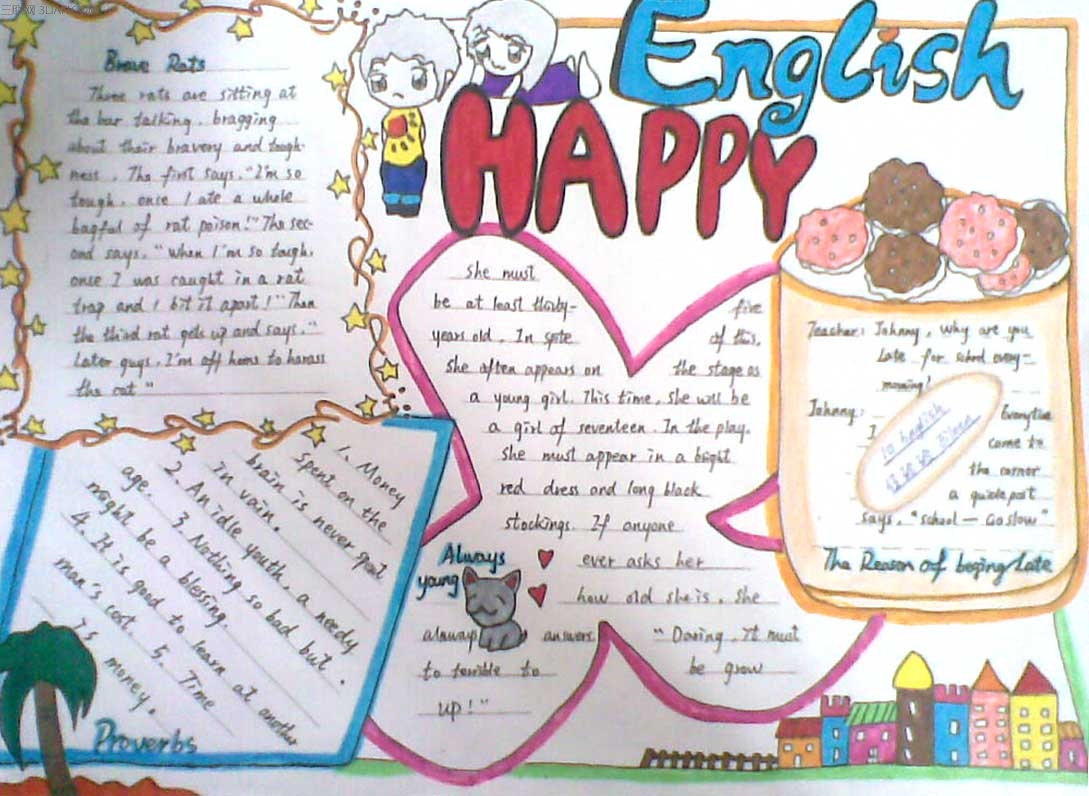 English
HAPPY
Brave Rats
Three rats are sitting at
the bar talking, bragging
about their bravery and tough-
ness. The first says, "I'm so
tough, once I ate a whole
bagful of rat poison!" The sec-
ond says. "when I'm so tough,
once I was caught in a rat
trap and I bit it apart!" Then
the third rat gets up and says, "
Later guys, I'm off home to harass
the cat"
1. Money
Spent on the
brain is never spent
in vain.
2. An idle youth, a needy
age. 3. Nothing so bad but
might be a blessing.
4. It is good to learn at another
man's cost. 5. Time
is money.
Proverbs
she must
be at least thirty- five
years old. In spite of this,
she often appears on the stage as
a young girl. This time, she will be
a girl of seventeen. In the play,
she must appear in a bright
red dress and long black
stockings. If anyone
ever asks her
how old she is, she
always answers "Daring, it must
to terrible to be grow
up!"
Always
young
Teacher: Johnny, why are you
late for school every-
morning?
Johnny: Everytime
I come to
the corner
a guidepost
says, "school — Go slow"
The Reason of beging Late